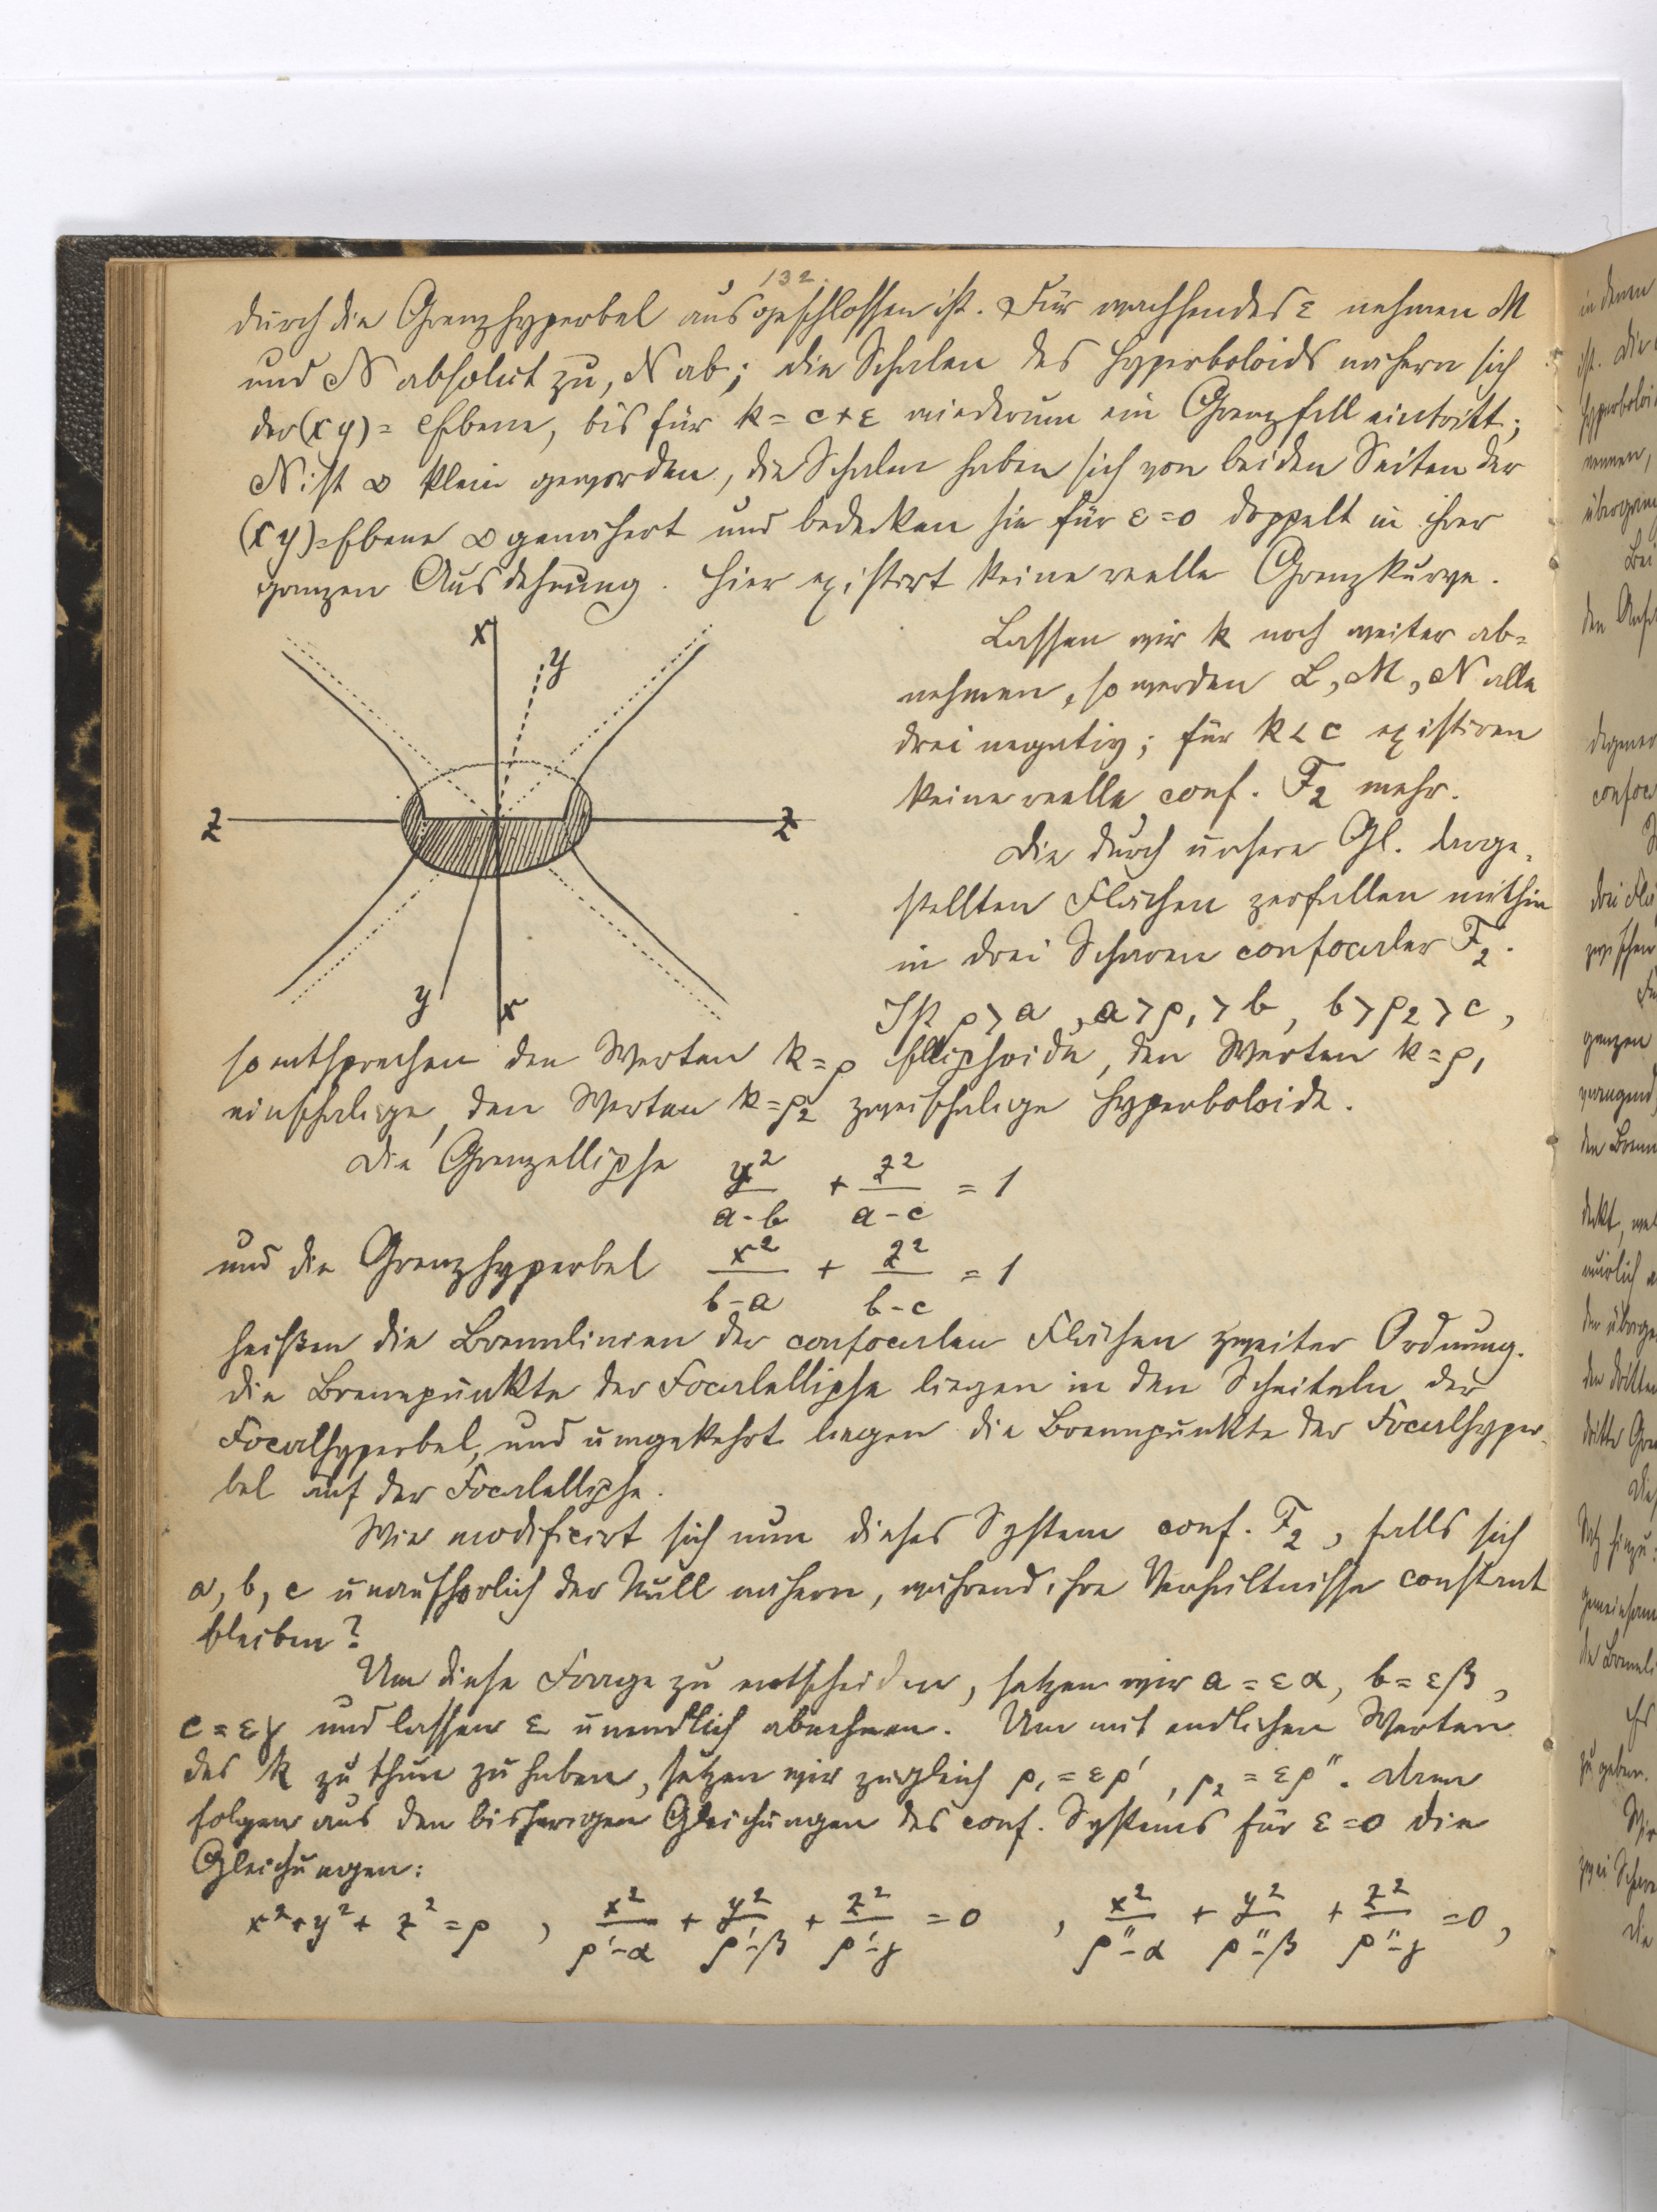 132.
durch die Grenzhyperbel ausgeschlossen ist. Für wachsendes ε nehmen M
und N absolut zu, N ab; die Schalen des Hyperboloids nähern sich
der (xy)=Ebene, bis für k = c+ε wiederum ein Grenzfall eintritt;
N ist ∞ klein geworden, die Schalen haben sich von beiden Seiten der
(xy)=Ebene ∞ genähert und bedecken sie für ε=0 doppelt in ihrer
ganzen Ausdehnung. Hier existirt keine reelle Grenzkurve.
x
y
z
z
y
x
Lassen wir k noch weiter ab=
nehmen, so werden L, M, N alle
drei negativ; für k < c existiren
keine reelle conf. F₂ mehr.
Die durch unsere Gl. darge=
stellten Flächen zerfallen mithin
in drei Scharen confocaler F₂.
Ist ρ > a, a > ρ₁ > b, b > ρ₂ > c,
so entsprechen den Werten k=ρ Ellipsoide, den Werten k=ρ₁
einschalige, den Werten k=ρ₂ zweischalige Hyperboloide.
Die Grenzellipse y²/(a-b) + z²/(a-c) = 1
und die Grenzhyperbel x²/(b-a) + z²/(b-c) = 1
heißen die Brennlinien der confocalen Flächen zweiter Ordnung.
Die Brennpunkte der Focalellipse liegen in den Scheiteln der
Focalhyperbel, und umgekehrt liegen die Brennpunkte der Focalhyper=
bel auf der Focalellipse.
Wie modificirt sich nun dieses System conf. F₂, falls sich
a, b, c unaufhörlich der Null nähern, während ihre Verhältnisse constant
bleiben?
Um diese Frage zu entscheiden, setzen wir a = εα, b = εβ,
c = εγ und lassen ε unendlich abnehmen. Um mit endlichen Werten
des k zu thun zu haben, setzen wir zugleich ρ₁ = ερ', ρ₂ = ερ". Dann
folgen aus den bisherigen Gleichungen des conf. Systems für ε=0 die
Gleichungen:
x²+y²+z² = ρ, x²/(ρ'-α) + y²/(ρ'-β) + z²/(ρ'-γ) = 0, x²/(ρ"-α) + y²/(ρ"-β) + z²/(ρ"-γ) = 0,